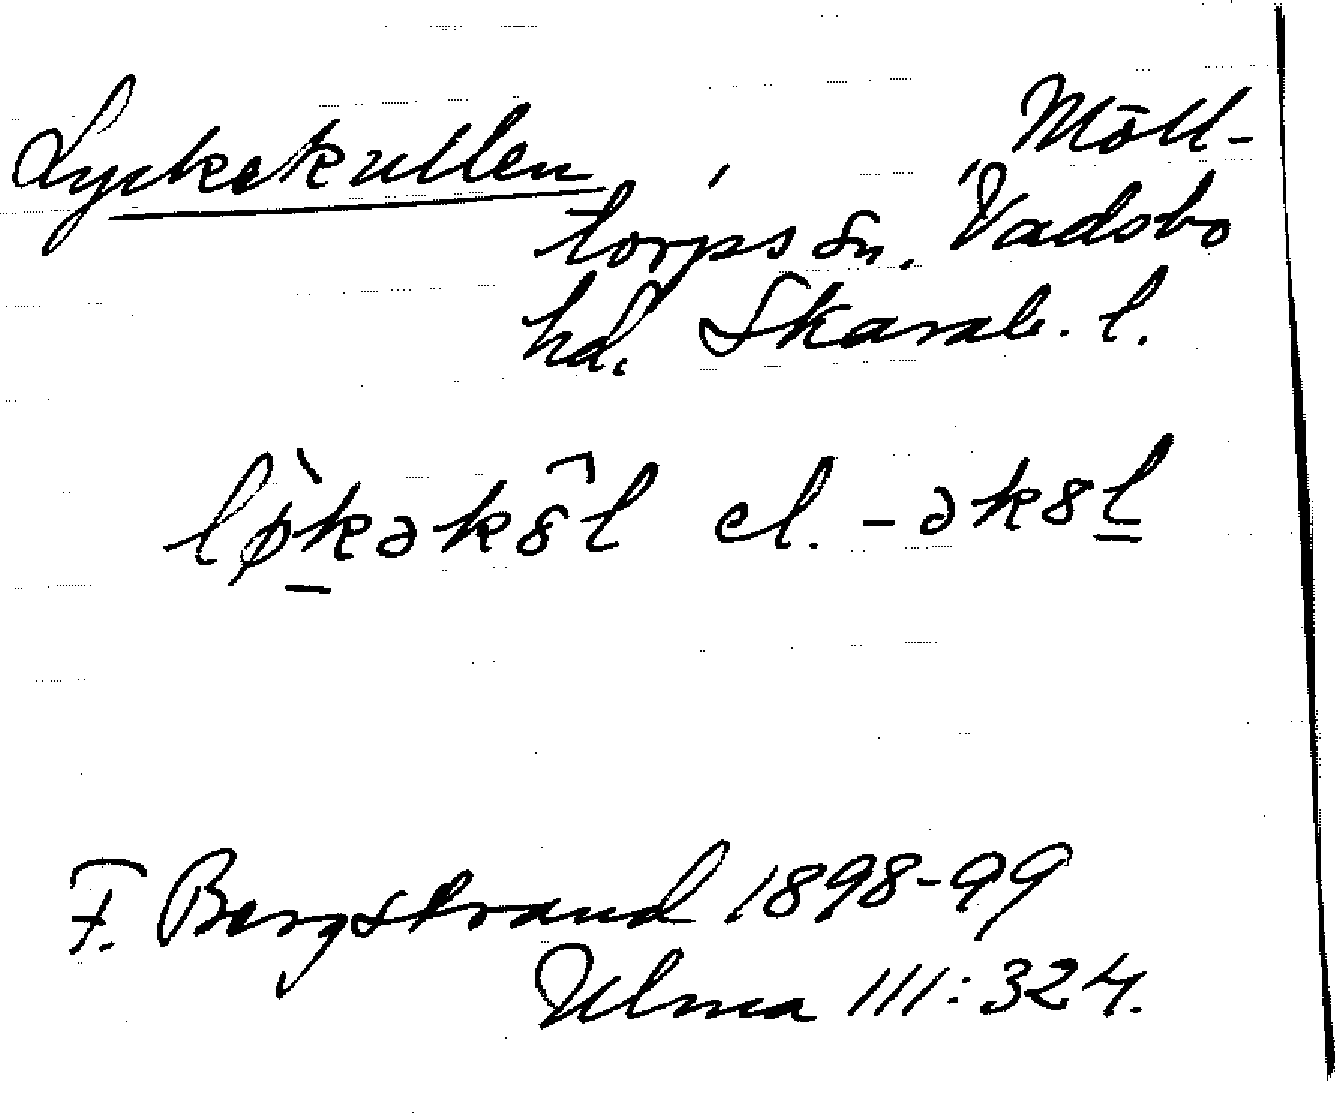 Lyckekullen, Möll-
torps sn. Vadsbo
hd. Skarab. l.
lø̀kəkȣ̂l el. -əkȣl
F. Bergstrand 1898-99
Ulma III:324.